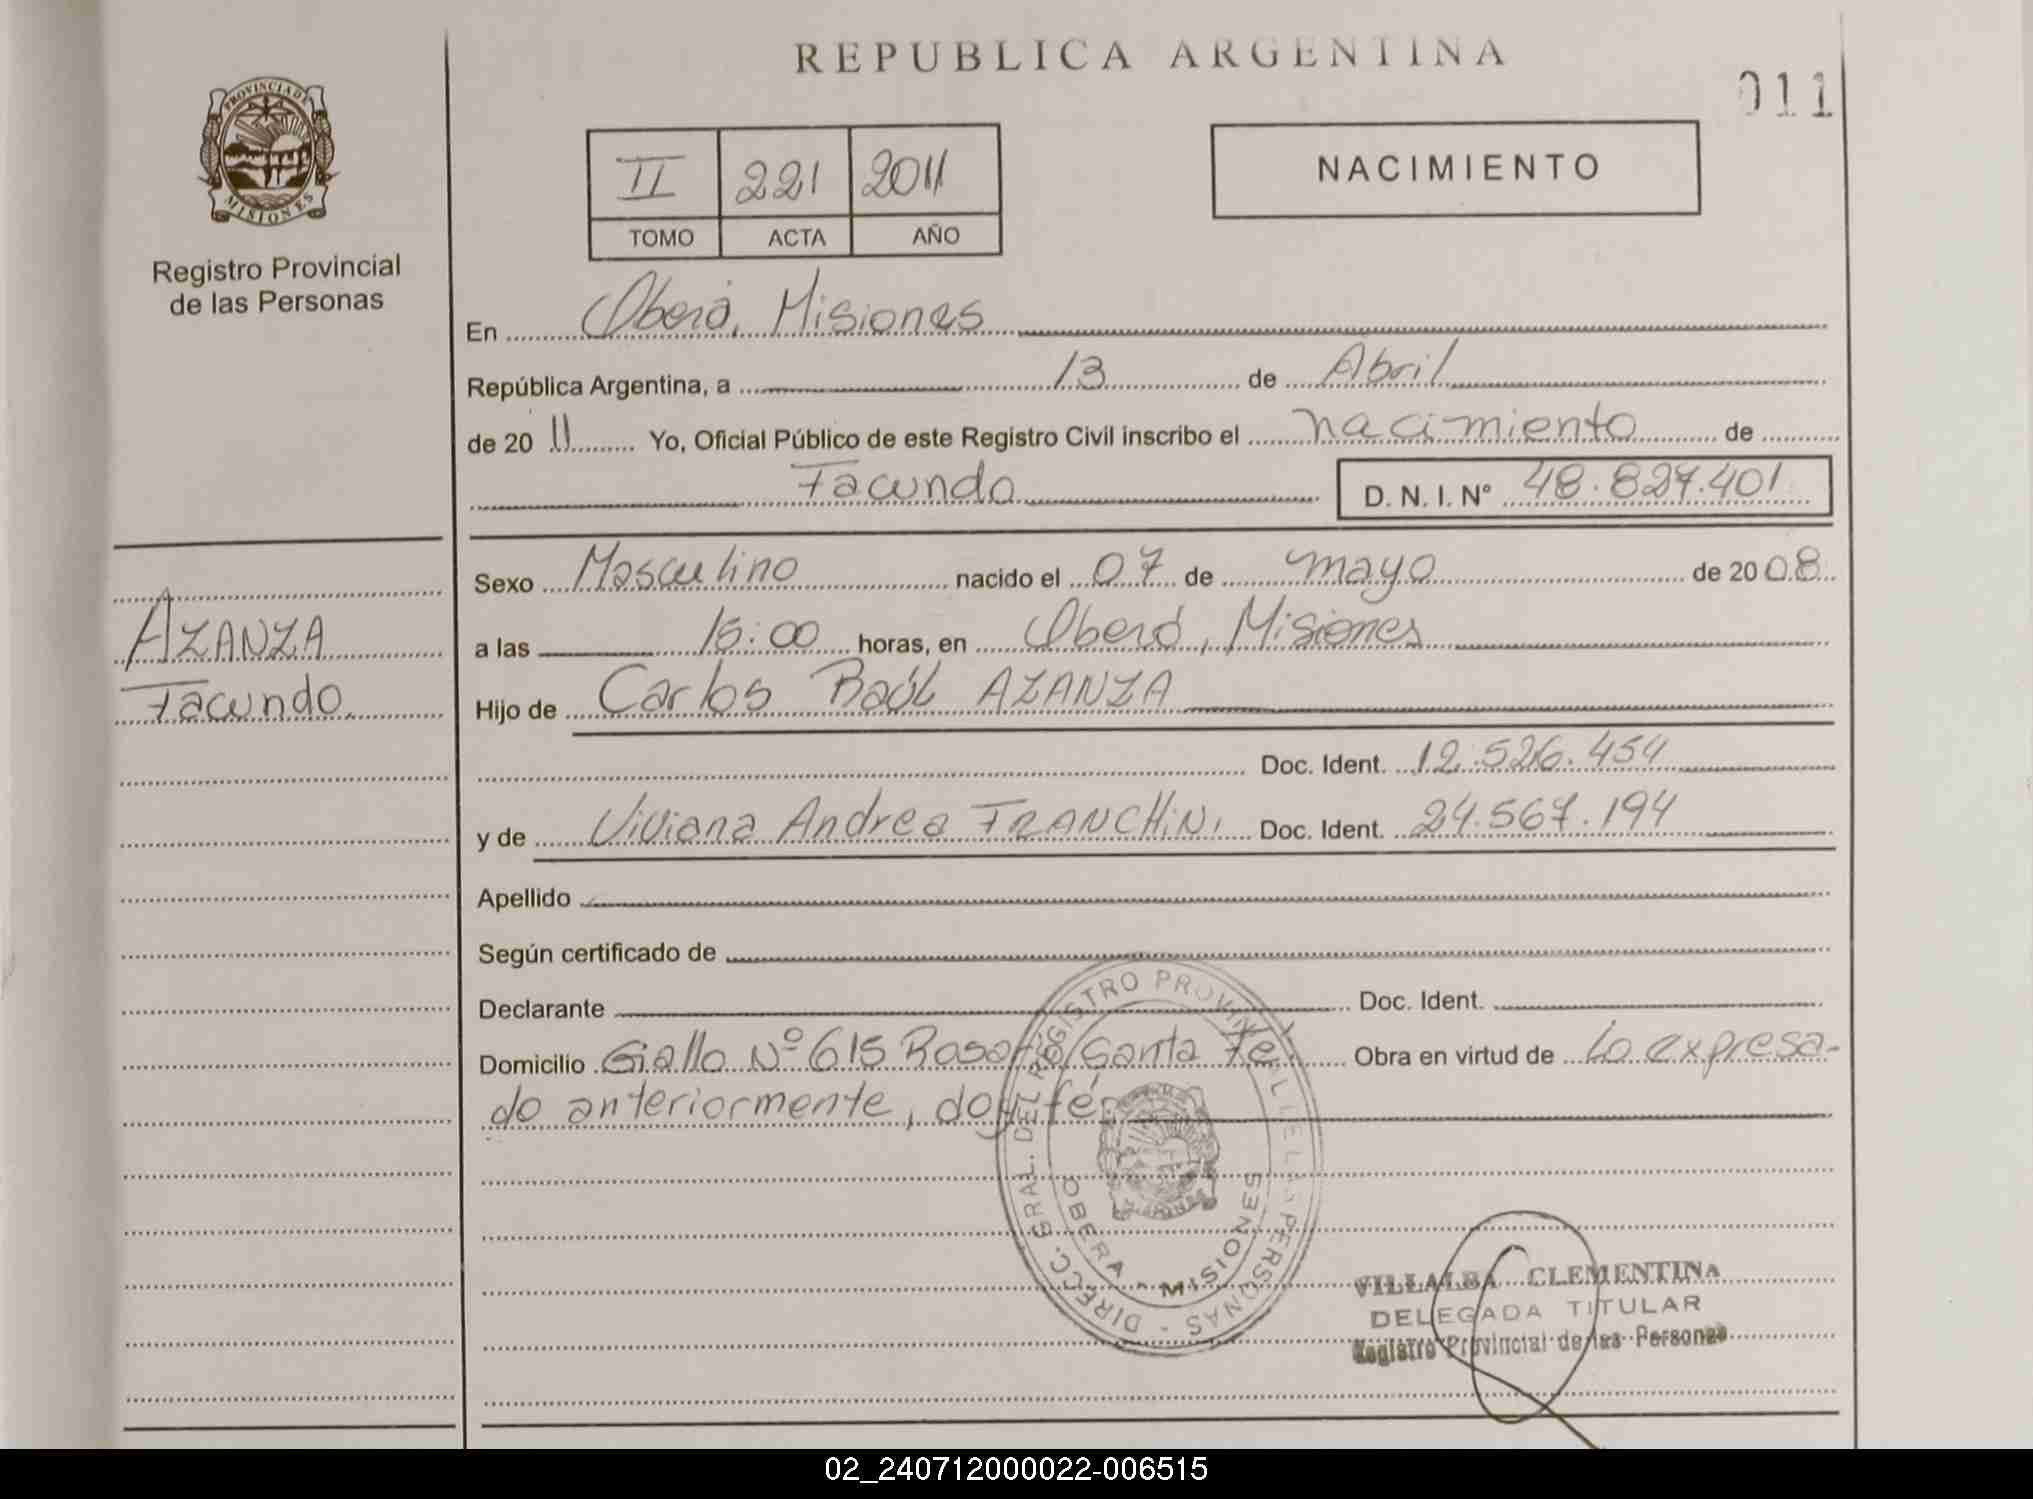 REPUBLICA ARGENTINA
011
PROVINCIA DE
MISIONES
Registro Provincial
de las Personas
II 221 2011
TOMO ACTA AÑO
NACIMIENTO
En Oberá, Misiones
República Argentina, a 13 de Abril
de 2011 Yo, Oficial Público de este Registro Civil inscribo el nacimiento de
Facundo D. N. I. N° 48.827.401
AZANZA
Facundo.
Sexo Masculino nacido el 07 de mayo de 2008
a las 15:00 horas, en Oberá, Misiones
Hijo de Carlos Raúl AZANZA
Doc. Ident. 12.526.454
y de Viviana Andrea FRANCHINI Doc. Ident. 24.567.194
Apellido
Según certificado de
Declarante Doc. Ident.
Domicilio Giallo Nº 615 Rosario/Santa Fé. Obra en virtud de Lo expresa-
do anteriormente, doy fé.
DIRECC. GRAL. DEL REGISTRO PROVINCIAL DE LAS PERSONAS -
OBERA - MISIONES
VILLALBA CLEMENTINA
DELEGADA TITULAR
Registro Provincial de las Personas
02_240712000022-006515